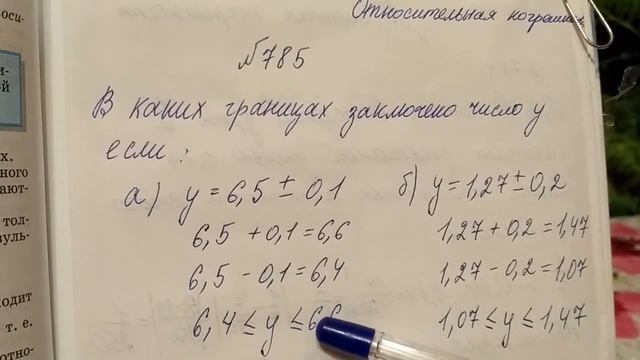 Относительная погрешн
№785
В каких границах заключено число y
если:
а) y = 6,5 ± 0,1
6,5 + 0,1 = 6,6
6,5 - 0,1 = 6,4
6,4 ≤ y ≤ 6,6
б) y = 1,27 ± 0,2
1,27 + 0,2 = 1,47
1,27 - 0,2 = 1,07
1,07 ≤ y ≤ 1,47
х.
ного
ают-
тол-
вуль-
ходит
т. е.
отно-